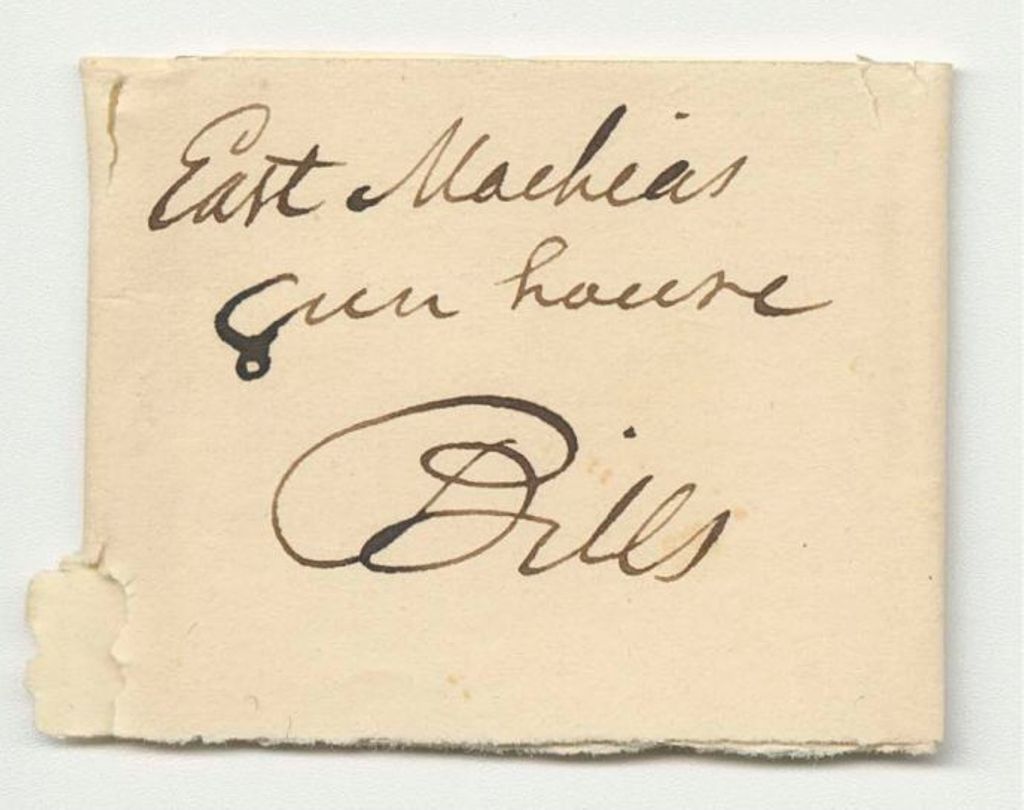 East Machias
Gun house
Bills